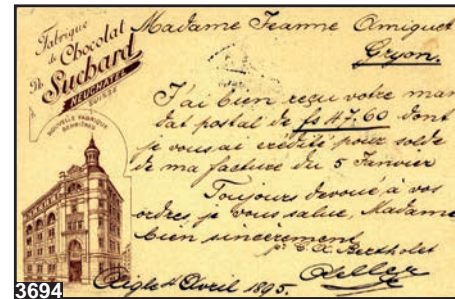 Fabrique
de Chocolat
Ph. Suchard
NEUCHATEL
SUISSE
NOUVELLE FABRIQUE
SERRIÈRES
Madame Jeanne Amiguet
Gryon.
J'ai bien reçu votre man
dat postal de fs 47,60 dont
je vous ai crédité pour solde
de ma facture du 5 Janvier
Toujours dévoué à vos
ordres, je vous salue, Madame
bien sincèrement
Bertholet
Aigle Avril 1895.
3694